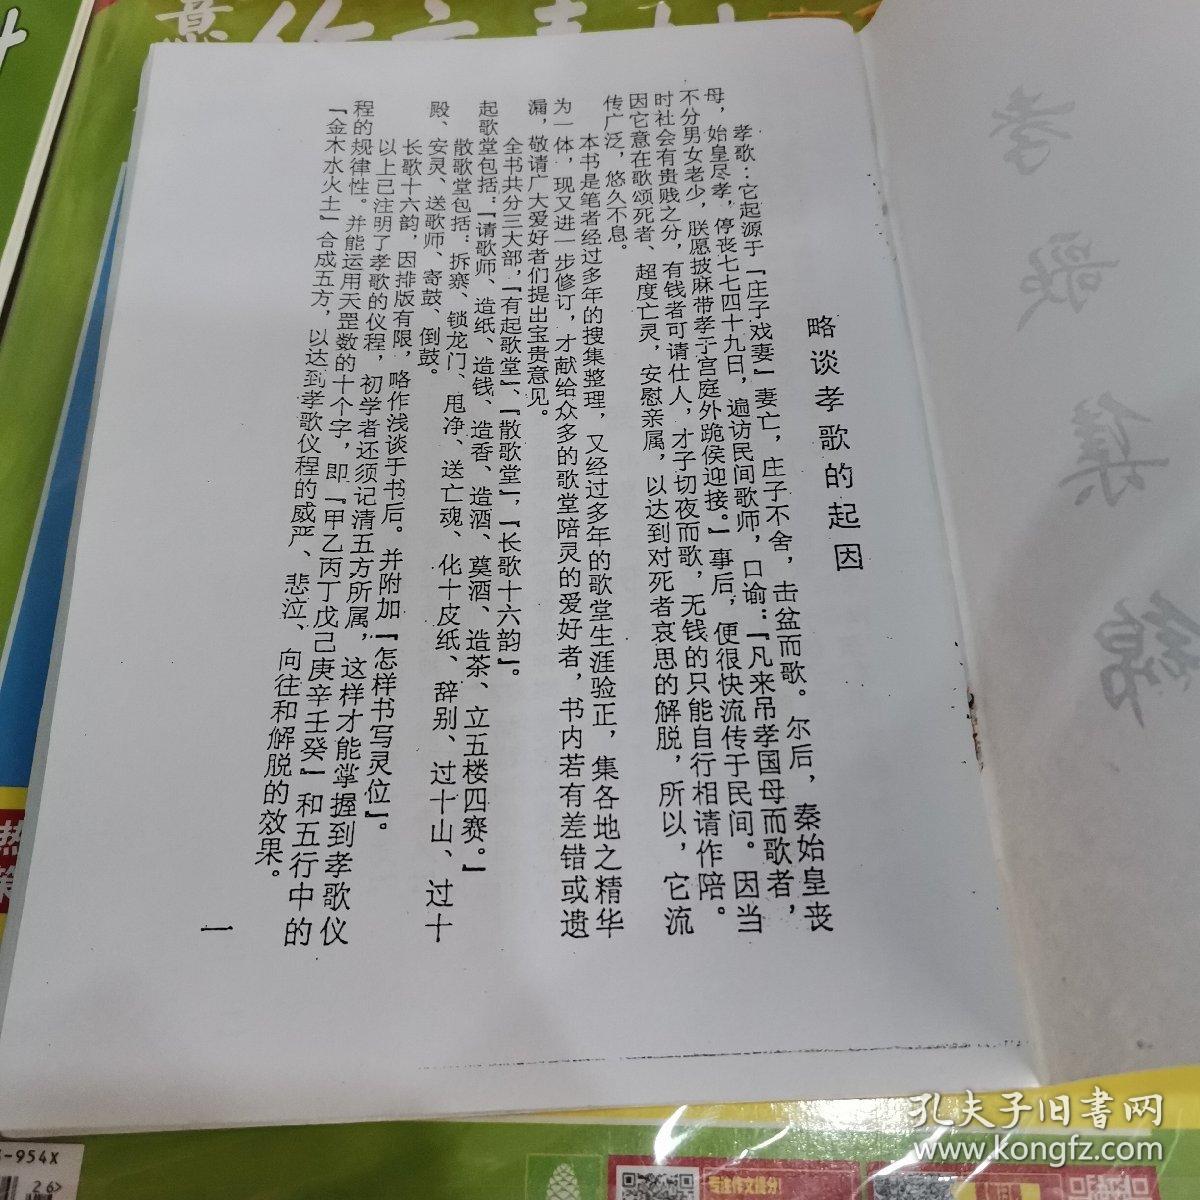 孝歌集锦
略谈孝歌的起因
孝歌：它起源于『庄子戏妻』妻亡，庄子不舍，击盆而歌。尔后，秦始皇丧
母，始皇尽孝，停丧七七四十九日，遍访民间歌师，口谕：『凡来吊孝国母而歌者，
不分男女老少，朕愿披麻带孝于宫庭外跪侯迎接。』事后，便很快流传于民间。因当
时社会有贵贱之分，有钱者可请仕人，才子切夜而歌，无钱的只能自行相请作陪。
因它意在歌颂死者、超度亡灵，安慰亲属，以达到对死者哀思的解脱，所以，它流
传广泛，悠久不息。
本书是笔者经过多年的搜集整理，又经过多年的歌堂生涯验正，集各地之精华
为一体，现又进一步修订，才献给众多的歌堂陪灵的爱好者，书内若有差错或遗
漏，敬请广大爱好者们提出宝贵意见。
全书共分三大部，『有起歌堂』、『散歌堂』，『长歌十六韵』。
起歌堂包括：『请歌师、造纸、造钱、造香、造酒、奠酒、造茶、立五楼四赛。』
散歌堂包括：拆寨、锁龙门、甩净、送亡魂、化十皮纸、辞别、过十山、过十
殿、安灵、送歌师、寄鼓、倒鼓。
长歌十六韵，因排版有限，略作浅谈于书后。并附加『怎样书写灵位』。
以上已注明了孝歌的仪程，初学者还须记清五方所属，这样才能掌握到孝歌仪
程的规律性。并能运用天罡数的十个字，即『甲乙丙丁戊己庚辛壬癸』和五行中的
『金木水火土』合成五方，以达到孝歌仪程的威严、悲泣、向往和解脱的效果。
一
孔夫子旧书网
www.kongfz.com
-954X
26>
专注作文提分！